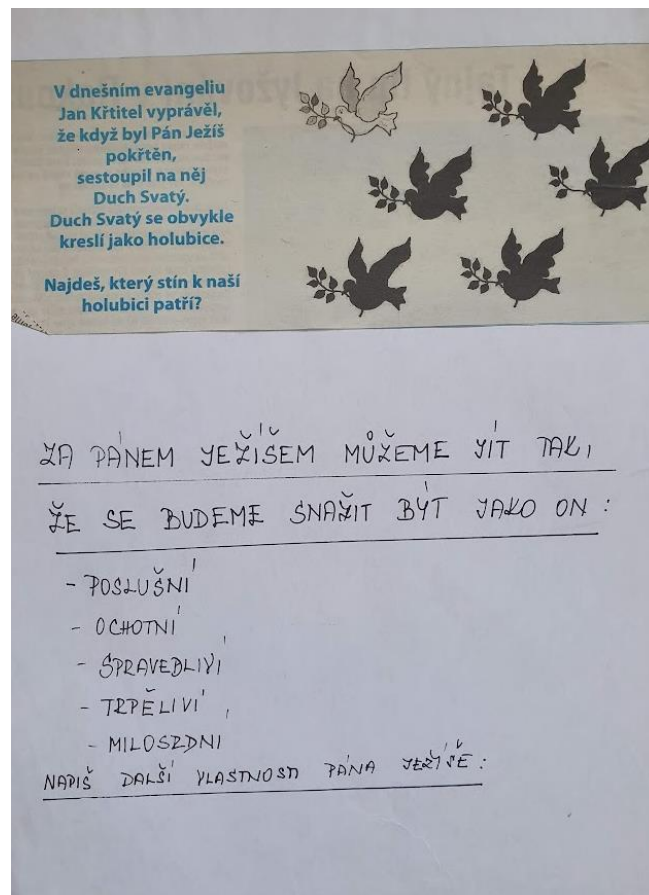 V dnešním evangeliu
Jan Křtitel vyprávěl,
že když byl Pán Ježíš
pokřtěn,
sestoupil na něj
Duch Svatý.
Duch Svatý se obvykle
kreslí jako holubice.
Najdeš, který stín k naší
holubici patří?
ZA PÁNEM JEŽÍŠEM MŮŽEME JÍT TAK,
ŽE SE BUDEME SNAŽIT BÝT JAKO ON :
- POSLUŠNÍ
- OCHOTNÍ
- SPRAVEDLIVÍ
- TRPĚLIVÍ,
- MILOSRDNÍ
NAPIŠ DALŠÍ VLASTNOSTI PÁNA JEŽÍŠE :